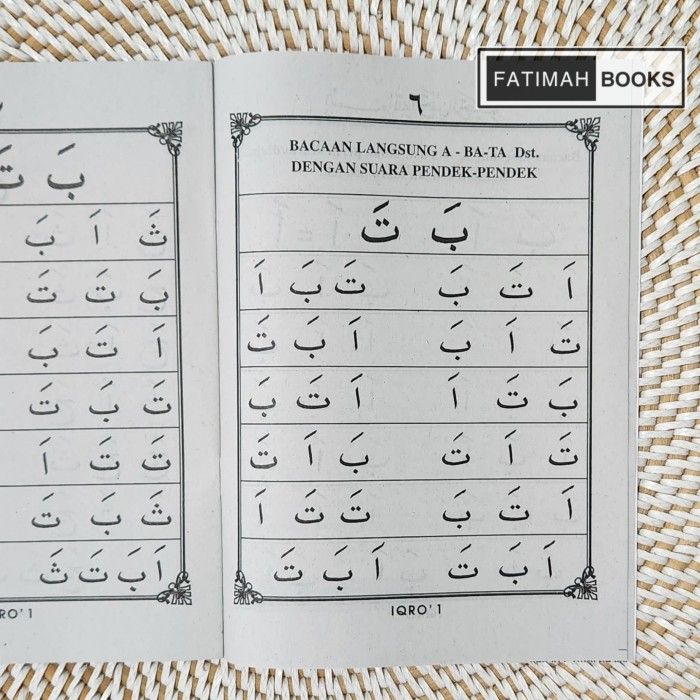 FATIMAH BOOKS
٦
BACAAN LANGSUNG A - BA-TA Dst.
DENGAN SUARA PENDEK-PENDEK
بَ تَ
اَ تَ بَ تَ بَ اَ
تَ اَ بَ اَ بَ تَ
بَ تَ اَ اَ تَ بَ
تَ اَ تَ بَ اَ تَ
اَ تَ بَ تَ تَ اَ
اَ بَ تَ اَ بَ تَ
IQRO' 1
بَ تَ
ثَ اَ بَ
بَ تَ تَ
اَ تَ بَ
تَ بَ تَ
تَ تَ اَ
ثَ بَ تَ
اَ بَ تَ ثَ
RO' 1